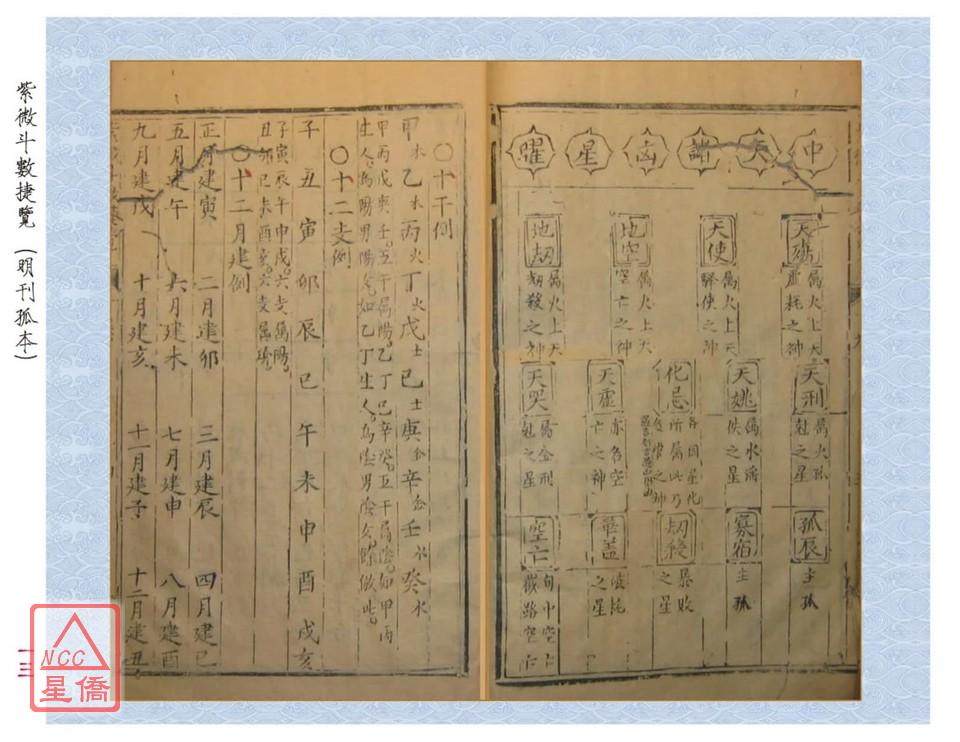 紫微斗數捷覽 (明刊孤本)
中天諸凶星曜
天傷
屬火上天
虛耗之神
天使
屬火上天
驛使之神
地空
屬火上天
空亡之神
地刼
屬火上天
刼殺之神
天刑
屬火孤
尅之星
天姚
屬水滛
佚之星
化忌
各因星化
所屬此乃
之神
天虛
亦名空
亡之神
天哭
屬金刑
尅之星
孤辰
主孤
寡宿
主孤
刼殺
暴敗
之星
華蓋
之星
空亡
旬中空亡
截路空亡
〇十干例
甲木乙木丙火丁火戊土己土庚金辛金壬水癸水
甲丙戊庚壬五干屬陽乙丁己辛癸五干屬陰如甲丙
生人為陽男陽女如乙丁生人為陰男陰女餘倣此
〇十二支例
子丑寅卯辰巳午未申酉戌亥
子寅辰午申戌六支屬陽
丑卯巳未酉亥六支屬陰
〇十二月建例
正月建寅 二月建卯 三月建辰 四月建巳
五月建午 六月建未 七月建申 八月建酉
九月建戌 十月建亥 十一月建子 十二月建丑
一三
NCC
星僑